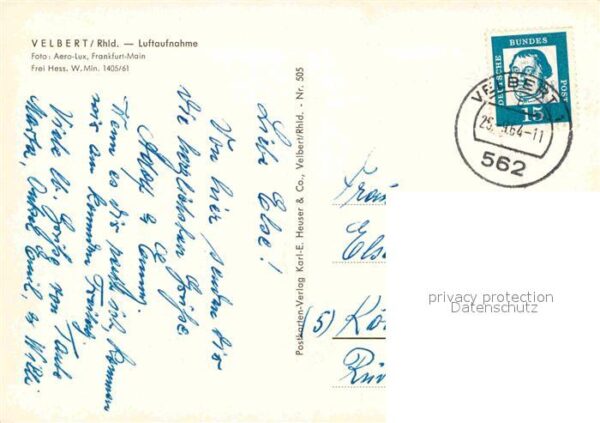 VELBERT/Rhld. — Luftaufnahme
Foto: Aero-Lux, Frankfurt-Main
Frei Hess. W. Min. 1405/61
Liebe Else!
Von hier senden Dir
die herzlichsten Grüße
Adolf &
Wenn es Dir paßt, kommen
wir am kommenden Freitag
Viele lb. Grüße von Tante
Marta, Onkel Emil, & Willi
Postkarten-Verlag Karl-E. Heuser & Co., Velbert/Rhld. - Nr. 505
DEUTSCHE BUNDESPOST
15
VELBERT 1
64-11
562
(5) Kö
privacy protection
Datenschutz